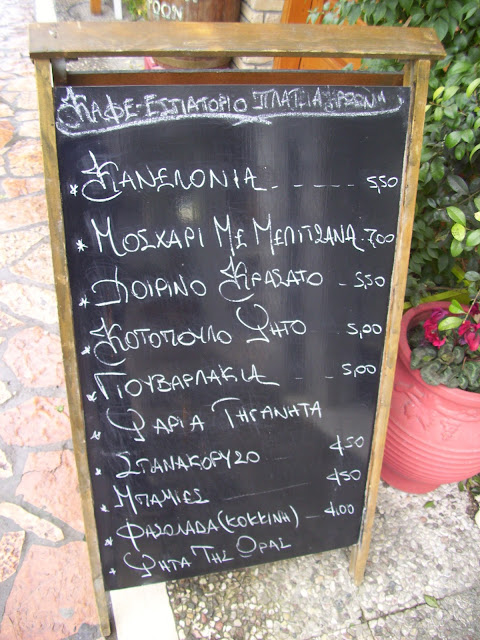 ΚΑΦΕ-ΕΣΤΙΑΤΟΡΙΟ ΠΛΑΤΕΙΑ ΗΡΩΩΝ
* ΚΑΝΕΛΟΝΙΑ ----- 5,50
* ΜΟΣΧΑΡΙ ΜΕ ΜΕΛΙΤΖΑΝΑ. 7,00
* ΧΟΙΡΙΝΟ ΚΡΑΣΑΤΟ - 5,50
* ΚΟΤΟΠΟΥΛΟ ΨΗΤΟ 5,00
* ΓΙΟΥΒΑΡΛΑΚΙΑ -- 5,00
* ΨΑΡΙΑ ΤΗΓΑΝΗΤΑ
* ΣΠΑΝΑΚΟΡΥΖΟ 4,50
* ΜΠΑΜΙΕΣ 4,50
* ΦΑΣΟΛΑΔΑ (ΚΟΚΚΙΝΗ) - 4,00
* ΨΗΤΑ ΤΗΣ ΩΡΑΣ